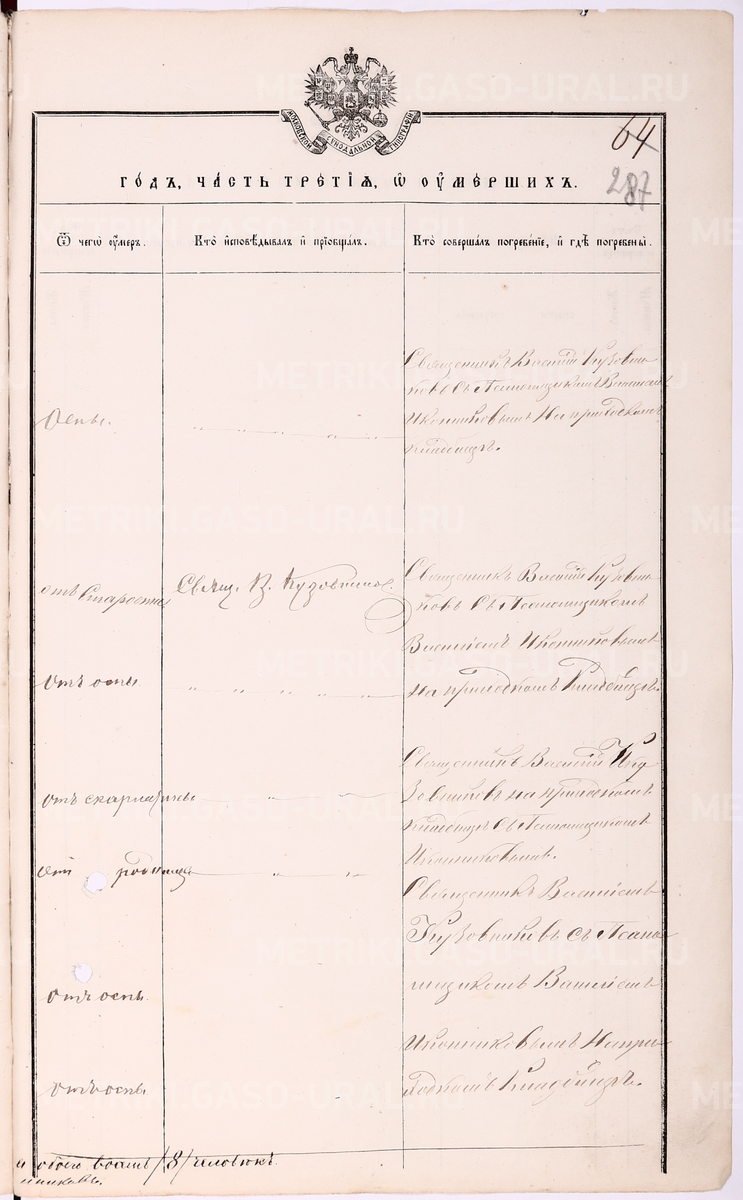 МОСКОВСКОЙ СѴНОДАЛЬНОЙ ТИПОГРАФІИ
64
287
го́дъ, ча́сть тре́тїѧ, ѡ҆ ᲂу҆ме́ршихъ.
Ѿ чегѡ̀ ᲂу҆́меръ.
Кто̀ и҆сповѣ́дывалъ и҆ прїѡбща́лъ.
Кто̀ соверша́лъ погребе́нїе, и҆ гдѣ̀ погребены̀.
Оспы.
Священникъ Василій Кузовни-
ковъ съ Псаломщикомъ Василіемъ
Иконниковымъ На приходскомъ
кладбищѣ.
отъ Старости
Свящ. В. Кузовников.
Священникъ Василій Кузовни-
ковъ съ Псаломщикомъ
Василіемъ Иконниковымъ
на приходскомъ Кладбищѣ.
отъ оспы
отъ скарлатины
Священникъ Василій Ку-
зовниковъ на приходскомъ
кладбищѣ съ Псаломщикомъ
Иконниковымъ.
отъ родимца
Священникъ Василіемъ
Кузовниковъ съ Псалом-
щикомъ Василіемъ
Иконниковымъ На при-
ходскомъ Кладбищѣ.
отъ оспы.
отъ оспы.
обоего /8/ человѣкъ.
METRIKI.GASO-URAL.RU